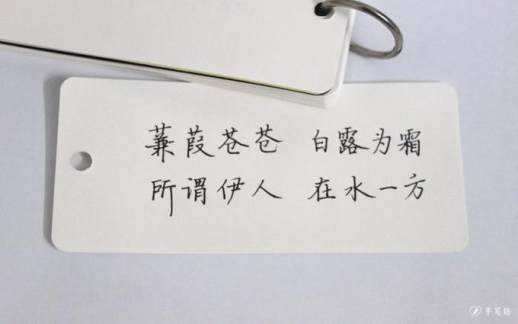 蒹葭苍苍 白露为霜
所谓伊人 在水一方